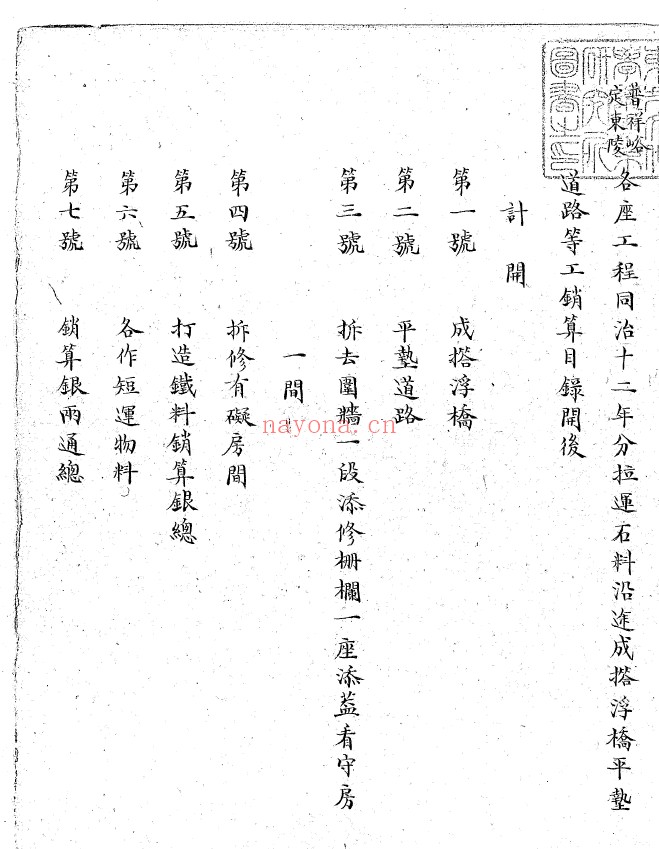 普祥峪
定東陵
各座工程同治十二年分拉運石料沿途成搭浮橋平墊
道路等工銷算目錄開後
計開
第一號　成搭浮橋
第二號　平墊道路
第三號　拆去圍牆一段添修柵欄一座添蓋看守房
一間
第四號　拆修有礙房間
第五號　打造鐵料銷算銀總
第六號　各作短運物料
第七號　銷算銀兩通總
nayona.cn